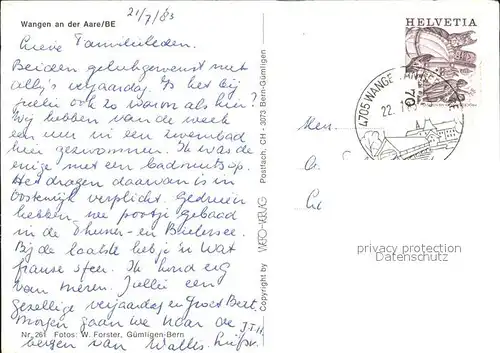 Wangen an der Aare/BE
21/7/83
HELVETIA
70
4705 WANGEN
22.
Lieve Familieleden.
Beiden gelukgewenst met
ally's verjaardag. Is het bij
jullie ook zo warm als hier?
Wij hebben van de week
een uur in een zwembad
hier gezwommen. Ik was de
enige met een badmuts op.
Het dragen daarvan is in
Oostenrijk verplicht. Gedrieën
hebben we pootje gebaad
in de Thuner- en Bielersee.
Bij de laatste heb je 'n wat
frausere sfeer. Ik hund erg
van meren. Jullie een
gezellige verjaardag en Groet Bert.
Morgen gaan we naar de
bergen van Wallis. Liefs.
J.T.H.
Men.
Postfach, CH - 3073 Bern-Gümligen
WERO-VERLAG
Copyright by
Nr. 261 Fotos: W. Forster, Gümligen-Bern
privacy protection
Datenschutz